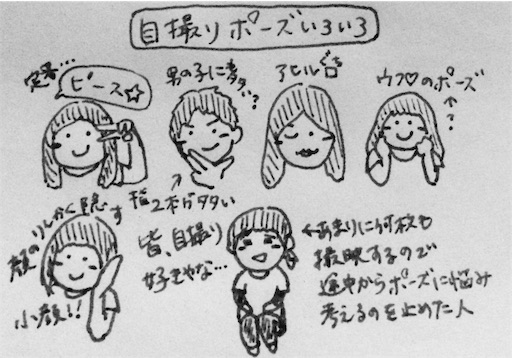 自撮りポーズいろいろ
定番…
ピース☆
男の子に多い?
アヒル口
ウフ♡のポーズ
↑?
指2本がダサい
顔のりんかく隠す
小顔!!
皆、自撮り
好きやな…
←あまりに何枚も
撮映するので
途中からポーズに悩み
考えるのを止めた人